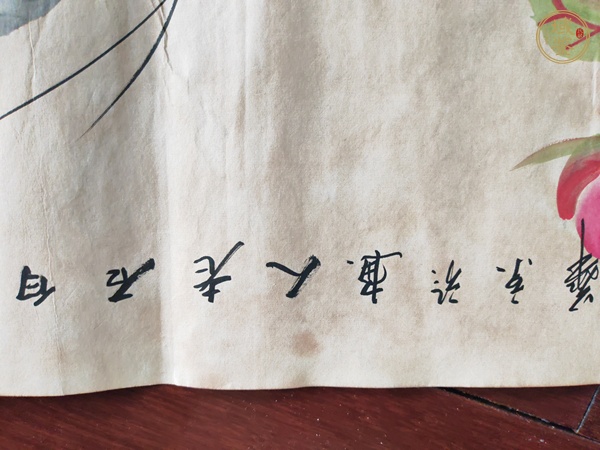 白石老人畫於京華